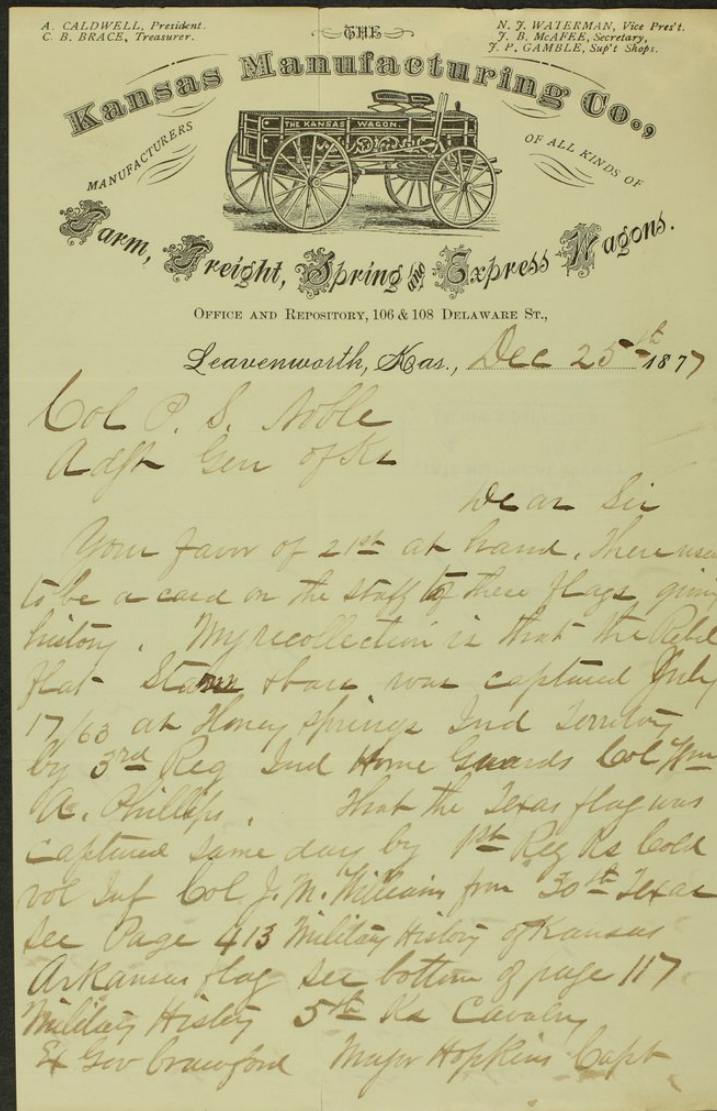 A. CALDWELL, President.
C. B. BRACE, Treasurer.
N. J. WATERMAN, Vice Pres't.
J. B. McAFEE, Secretary,
J. P. GAMBLE, Sup't Shops.
THE
Kansas Manufacturing Co.,
MANUFACTURERS
OF ALL KINDS OF
THE KANSAS WAGON.
Farm, Freight, Spring AND Express Wagons.
OFFICE AND REPOSITORY, 106 & 108 DELAWARE ST.,
Leavenworth, Kas., Dec 25th 1877
Col P. S. Noble
Adjt Gen of Ks
Dear Sir
Your favor of 21st at hand. There used
to be a card on the staff of these flags giving
history. My recollection is that the Rebel
flat Stars & bars was captured July
17/63 at Honey springs Ind Territory
by 3rd Reg Ind Home Guards Col Wm
A. Phillips. That the Texas flag was
captured same day by 1st Reg Ks Cold
vol Inf Col J. M. Williams from 30th Texas
see Page 413 Military History of Kansas
Arkansas flag see bottom of page 117
Military History 5th Ks Cavalry
Ex Gov Crawford Major Hopkins Capt